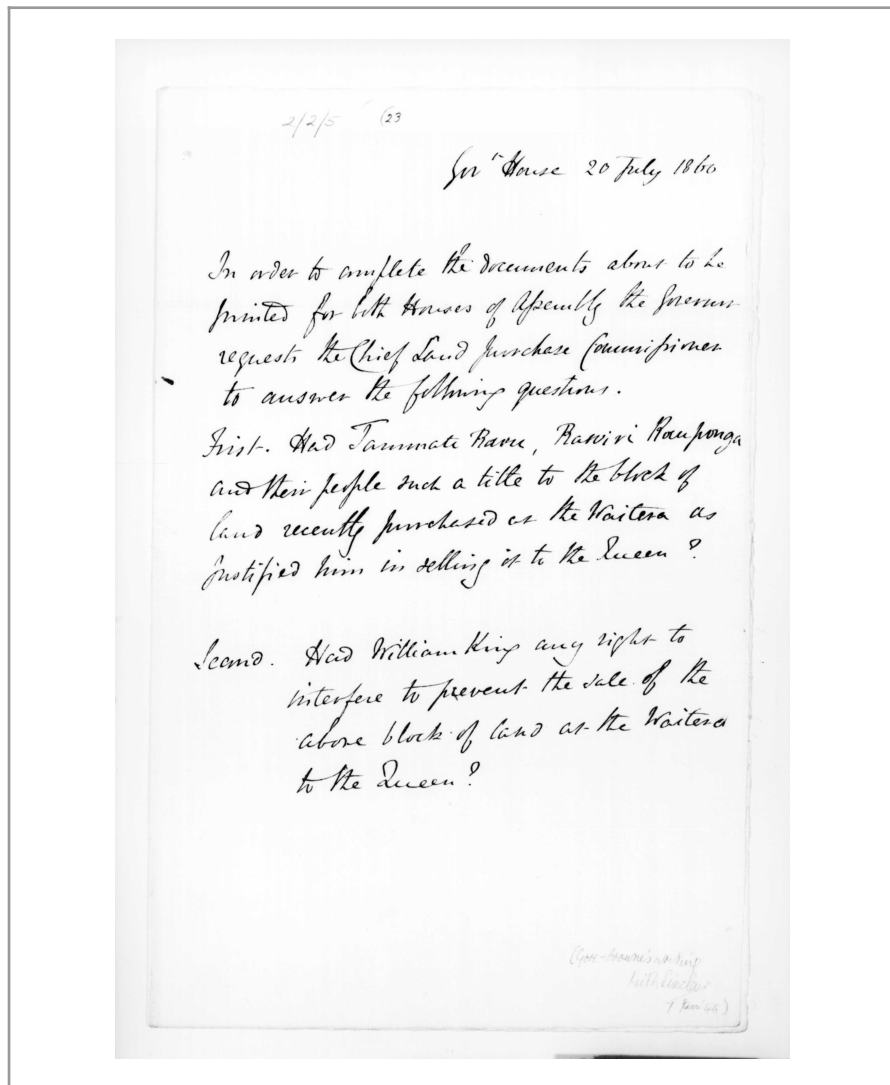 2/2/5 (23
Govt House 20 July 1860
In order to complete the documents about to be
printed for both Houses of Assembly the Governor
requests the Chief Land purchase Commissioner
to answer the following questions.
First. Had Tammati Raru, Rawiri Rauponga
and their people such a title to the block of
land recently purchased at the Waitera as
justified him in selling it to the Queen?
Second. Had William King any right to
interfere to prevent the sale of the
above block of land at the Waitera
to the Queen?
(Gore-Browne's writing
Keith Sinclair